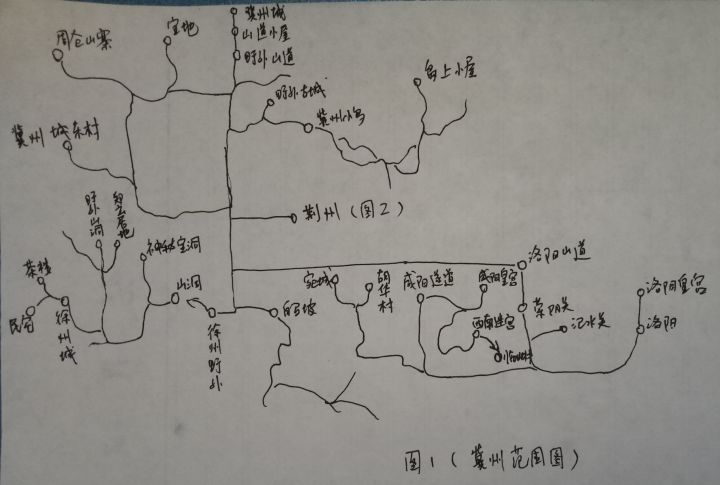 冀州城
山道小屋
野外山道
宝地
周仓山寨
野外古城
岛上小屋
冀州小岛
冀州城东村
荆州(图2)
野外山洞
神秘宝洞
山洞
茶楼
民宅
徐州城
徐州野外
白马坡
胡华村
咸阳通道
咸阳皇宫
西南迷宫
洛阳山道
荥阳关
汜水关
洛阳皇宫
洛阳
图1(冀州范围图)